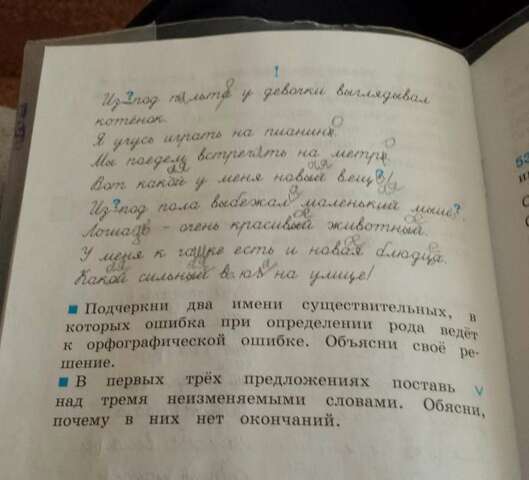 Из?под пальто у девочки выглядывал
котёнок.
Я учусь играть на пианино.
Мы поедем встречать на метро.
Вот какой у меня новый вещ?!
Из?под пола выбежал маленький мыш?.
Лошадь - очень красивый животный.
У меня к чашке есть и новая блюдца.
Какой сильный на улице!
Подчеркни два имени существительных, в
которых ошибка при определении рода ведёт
к орфографической ошибке. Объясни своё ре-
шение.
В первых трёх предложениях поставь V
над тремя неизменяемыми словами. Обясни,
почему в них нет окончаний.